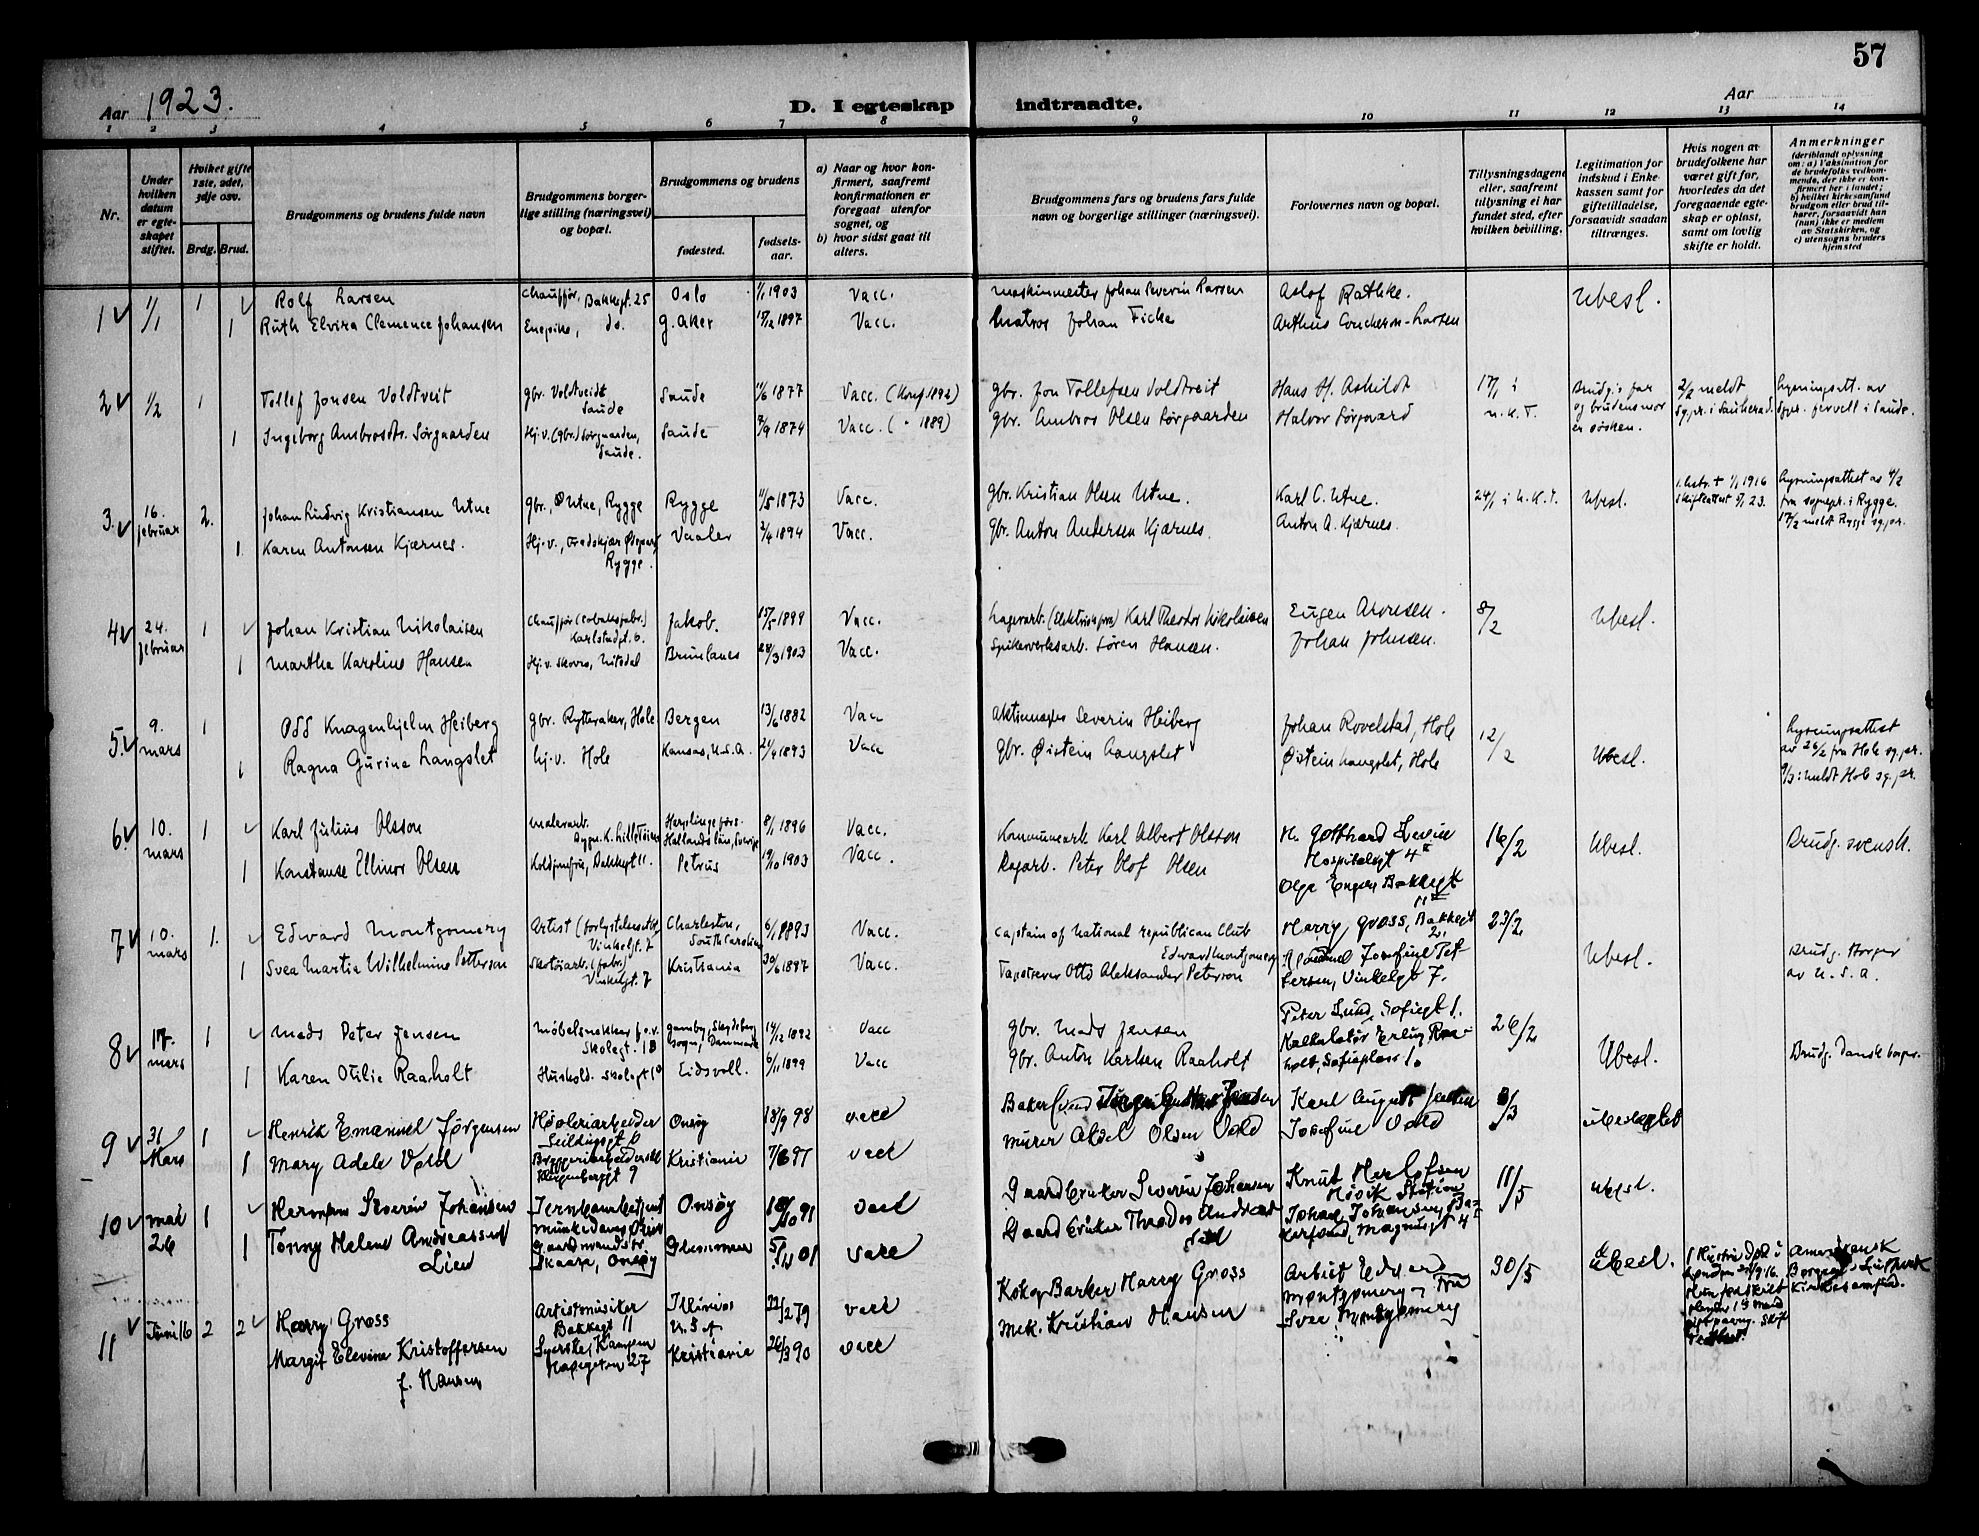 57
Aar 1923.
D. I egteskap indtraadte.
Aar
1 2 3 4 5 6 7 8 9 10 11 12 13 14
Nr.
Under hvilken datum er egte-skapet stiftet.
Hvilket gifte 1ste, 2det, 3dje osv.
Brdg. Brud.
Brudgommens og brudens fulde navn
Brudgommens borger-lige stilling (næringsvei) og bopæl.
Brudgommens og brudens
fødested.
fødsels-aar.
a) Naar og hvor kon-firmert, saafremt konfirmationen er foregaat utenfor sognet, og
b) hvor sidst gaat til alters.
Brudgommens fars og brudens fars fulde navn og borgerlige stillinger (næringsvei).
Forlovernes navn og bopæl.
Tillysningsdagene eller, saafremt tillysning ei har fundet sted, efter hvilken bevilling.
Legitimation for indskud i Enke-kassen samt for giftetilladelse, forsaavidt saadan tiltrænges.
Hvis nogen av brudefolkene har været gift før, hvorledes da det foregaaende egte-skap er opløst, samt om lovlig skifte er holdt.
Anmerkninger (deriblandt oplysning om: a) Vaksination for de brudefolks vedkom-mende, der ikke er kon-firmert her i landet; b) hvilket kirkesamfund brudgom eller brud til-hører, forsaavidt han (hun) ikke er medlem av Statskirken, og c) utensogns bruders hjemsted
1 1/1 1 Rolf Larsen Chauffør, Bakkegt. 25 Oslo 1/1 1903 Vacc. Maskinmester Johan Severin Larsen Aslof Rathke. Ubesl.
1 Ruth Elvira Clemence Johansen Enepike, do. G. Aker 1897 Vacc. Matros Johan Ficke Arthus Larsen
2 1/2 1 Tollef Jonsen Voldtveit gbr. Voldtveit Saude Saude 11/6 1877 Vacc. (Konf. 1892) gbr. Jon Tollefsen Voldtveit Hans H. Askildt 17/1 i u.k.T. Brudg.s far og brudens mor er søsken. 2/2 meldt sg.pr. i Sauherad. Lysningsatt. av sgpr. i Saude.
1 Ingeborg Ambrosdtr. Sørgaarden Hj.v. (gbr.) Sørgaarden, Saude. Saude 7/9 1874 Vacc. ( " 1889) gbr. Ambros Olsen Sørgaarden Halvor Sørgaard
3. 16. februar 2. Johan Ludvig Kristiansen Utne gbr., Ø Utne, Rygge Rygge 11/5 1873 Vacc. gbr. Kristian Olsen Utne. Karl C. Utne. 24/1 i u.k.T. Ubesl. 1. hstr. † 1/1 1916 skifteattest 23. Lysningsattest av 4/2 fra sognepr. i Rygge. 17/2 meldt Rygge sg.pr.
1. Karen Antonsen Kjærnes. Hj.v., Rygge. Vaaler 2/4 1894 Vacc. gbr. Anton Andersen Kjærnes. Anton A. Kjærnes.
4 24. februar 1 Johan Kristian Nikolaisen Chauffør (tobaksfabr.) Karlstadgt. 6. Jakob. 15/5 1899 Vacc. Lagerarb. Karl Theodor Nikolaisen Eugen Arvesen. 8/2 Ubesl.
1 Martha Karoline Hansen Hj.v. Skovro, Nitedal Brunlanes 28/3 1903 Vacc. Spikerverksarb. Søren Hansen. Johan Johnsen.
5. 9. mars 1 Odd Knagenhjelm Heiberg gbr. Rytteraker, Hole Bergen 13/6 1882 Vacc Severin Heiberg Johan Rovelstad, Hole 12/2 Ubesl. Lysningsattest av 26/2 fra Hole sg.pr. 9/3: meldt Hole sg.pr.
1 Ragna Gurine Langslet hj.v. Hole Kansas, U.S.A. 21/4 1893 Vacc gbr. Øistein Langslet Øistein Langslet, Hole
6 10. mars 1 Karl Julius Olsson Malerarb. Hallandslän, Sverige 8/1 1896 Vacc. Kommunearb. Karl Albert Olsson H. Gotthard Levin Hospitalsgt 4 II 16/2 Ubesl. Brudg. svensk.
1 Konstanse Ellinor Olsen Koldjomfru, Bakkegt 11. Petrus 19/10 1903 Vacc. Dagarb. Peter Olof Olsen Olga Engen Bakkegt 11 II
7 10. mars 1. Edward Montgomery Artist Vinkelgt. 7 Charleston, South Carolina 6/1 1893 Vacc. Captain of National republican Club Edward Montgomery Harry Gross, Bakkegt 23/2 Ubesl. Brudg. Borger av U.S.A.
1 Svea Martia Wilhelmine Petterson Skotøiarb. (fabr.) Vinkelgt. 7 Kristiania 30/6 1897 Vacc. Tapetserer Otto Aleksander Peterson Josefine Pet-tersen, Vinkelgt 7.
8 17. mars 1 Mads Peter Jensen Møbelsnekker Skolegt. 1B sogn, Danmark 14/12 1892 Vacc gbr. Mads Jensen Peter Lund, Sofiegt 1. 26/2 Ubesl. Brudg. Dansk borger.
1 Karen Otilie Raaholt Hushold. Skolegt 1B Eidsvoll. 6/11 1899 Vacc gbr. Anton Karlsen Raaholt Kalkulatør Erling Raa-holt, Sofieplass 1.
9 31 Mars 1 Henrik Emanuel Jørgensen Høvleriarbeider Seildugsgt 6 Onsøy 18/9 98 vacc Baker Karl August Jensen 3/3 ubeslegtet
1 Mary Adele Vold Bryggeriarbeiderske 9 Kristiania 7/6 97 vacc Murer Aksel Olsen Vold Josefine Vold
10 Mai 26 1 Herman Severin Johansen Jernbanebetjent Onsøy 91 vacc Gaardbruker Severin Johansen Knut Herlofsen Høvik Station 11/5 ubesl.
1 Tonny Helene Andreassen Lien Skaare, Onsøy Glemmen 01 vacc Gaardbruker Thoedor Andreas Johan Johansen Magnusgt 4
11 Juni 16 2 2 Harry Gross Artistmusiker Bakkegt 11 Illinois U.S.A 22/2 79 vacc Kok og Barker Harry Gross Artist Edvard Montgomery 30/5 Ubesl. Amerikansk Borger
Margit Elevine Kristoffersen f. Hansen Syerske, Kampen Hagegaten 27 Kristiania 26/3 90 vacc Mek. Kristian Hansen Fru Svea Montgomery